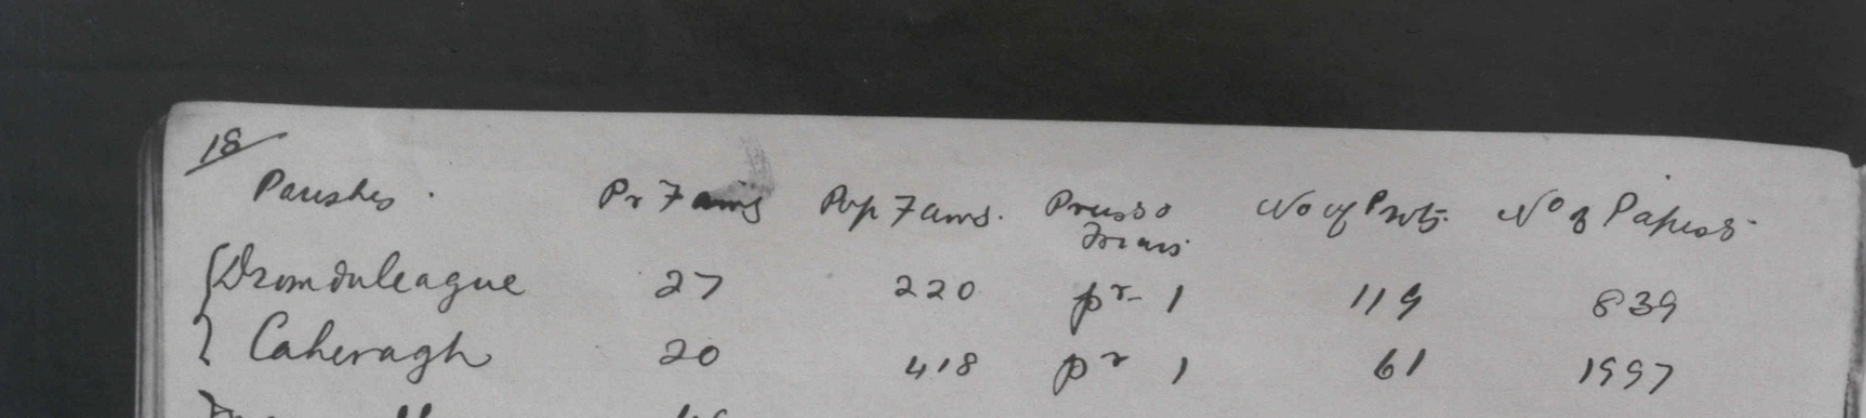 18
Parishes. Pr Fams Pop Fams. No of Prots. No of Papists.
Dromduleague 27 220 pr- 1 119 839
Caheragh 20 418 pr 1 61 1997